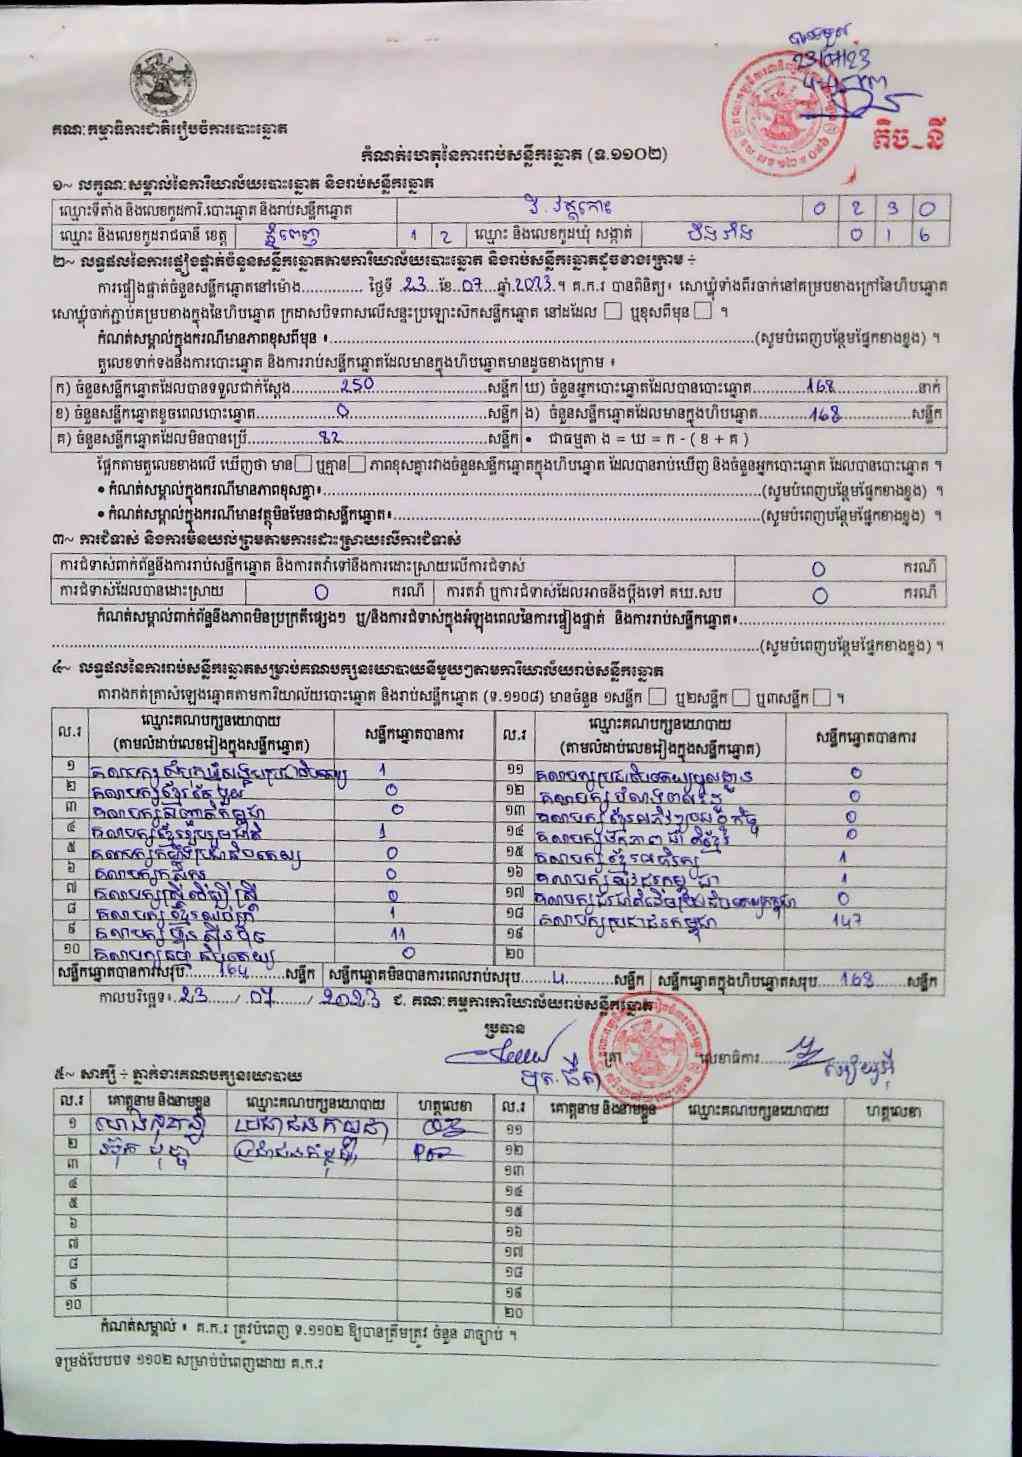 23/07/23
គណៈកម្មាធិការជាតិរៀបចំការបោះឆ្នោត
តិច_នី
កំណត់ហេតុនៃការរាប់សន្លឹកឆ្នោត (ទ.១១០២)
១~ លក្ខណៈសម្គាល់នៃការិយាល័យបោះឆ្នោត និងរាប់សន្លឹកឆ្នោត
ឈ្មោះទីតាំង និងលេខកូដការិ.បោះឆ្នោត និងរាប់សន្លឹកឆ្នោត វិ. វត្តកោះ 0 2 3 0
ឈ្មោះ និងលេខកូដរាជធានី ខេត្ត ភ្នំពេញ 1 2 ឈ្មោះ និងលេខកូដឃុំ សង្កាត់ 0 1 6
២~ លទ្ធផលនៃការផ្ទៀងផ្ទាត់ចំនួនសន្លឹកឆ្នោតតាមការិយាល័យបោះឆ្នោត និងរាប់សន្លឹកឆ្នោតដូចខាងក្រោម ÷
ការផ្ទៀងផ្ទាត់ចំនួនសន្លឹកឆ្នោតនៅម៉ោង.............. ថ្ងៃទី .23...ខែ..07....ឆ្នាំ.2023.។ គ.ក.រ បានពិនិត្យ៖ សោឃ្លុំទាំងពីរចាក់នៅគម្របខាងក្រៅនៃហិបឆ្នោត
សោឃ្លុំចាក់ភ្ជាប់គម្របខាងក្នុងនៃហិបឆ្នោត ក្រដាសបិទពាសលើសន្ទះប្រឡោះសឹកសន្លឹកឆ្នោត នៅដដែល □ ឬខុសពីមុន □ ។
កំណត់សម្គាល់ក្នុងករណីមានភាពខុសពីមុន ៖....................(សូមបំពេញបន្ថែមផ្នែកខាងខ្នង) ។
តួលេខទាក់ទងនឹងការបោះឆ្នោត និងការរាប់សន្លឹកឆ្នោតដែលមានក្នុងហិបឆ្នោតមានដូចខាងក្រោម ៖
ក) ចំនួនសន្លឹកឆ្នោតដែលបានទទួលជាក់ស្តែង..........250..........សន្លឹក ឃ) ចំនួនអ្នកបោះឆ្នោតដែលបានបោះឆ្នោត..........168..........នាក់
ខ) ចំនួនសន្លឹកឆ្នោតខូចពេលបោះឆ្នោត..........0..........សន្លឹក ង) ចំនួនសន្លឹកឆ្នោតដែលមានក្នុងហិបឆ្នោត..........168..........សន្លឹក
គ) ចំនួនសន្លឹកឆ្នោតដែលមិនបានប្រើ..........82..........សន្លឹក • ជាធម្មតា ង = ឃ = ក - ( ខ + គ )
ផ្អែកតាមតួលេខខាងលើ ឃើញថា មាន □ ឬគ្មាន □ ភាពខុសគ្នារវាងចំនួនសន្លឹកឆ្នោតក្នុងហិបឆ្នោត ដែលបានរាប់ឃើញ និងចំនួនអ្នកបោះឆ្នោត ដែលបានបោះឆ្នោត ។
• កំណត់សម្គាល់ក្នុងករណីមានភាពខុសគ្នា៖....................(សូមបំពេញបន្ថែមផ្នែកខាងខ្នង) ។
• កំណត់សម្គាល់ក្នុងករណីមានវត្ថុមិនមែនជាសន្លឹកឆ្នោត៖....................(សូមបំពេញបន្ថែមផ្នែកខាងខ្នង) ។
៣~ ការជំទាស់ និងការមិនយល់ព្រមតាមការដោះស្រាយលើការជំទាស់
ការជំទាស់ពាក់ព័ន្ធនឹងការរាប់សន្លឹកឆ្នោត និងការតវ៉ាទៅនឹងការដោះស្រាយលើការជំទាស់ 0 ករណី
ការជំទាស់ដែលបានដោះស្រាយ 0 ករណី ការតវ៉ា ឬការជំទាស់ដែលអាចនឹងប្តឹងទៅ គឃ.សប 0 ករណី
កំណត់សម្គាល់ពាក់ព័ន្ធនឹងភាពមិនប្រក្រតីផ្សេងៗ ឬ/និងការជំទាស់ក្នុងអំឡុងពេលនៃការផ្ទៀងផ្ទាត់ និងការរាប់សន្លឹកឆ្នោត៖....................
....................(សូមបំពេញបន្ថែមផ្នែកខាងខ្នង) ។
៤~ លទ្ធផលនៃការរាប់សន្លឹកឆ្នោតសម្រាប់គណបក្សនយោបាយនីមួយៗតាមការិយាល័យរាប់សន្លឹកឆ្នោត
តារាងកត់ត្រាសំឡេងឆ្នោតតាមការិយាល័យបោះឆ្នោត និងរាប់សន្លឹកឆ្នោត (ទ.១១០៨) មានចំនួន ១សន្លឹក □ ឬ២សន្លឹក □ ឬ៣សន្លឹក □ ។
ល.រ ឈ្មោះគណបក្សនយោបាយ (តាមលំដាប់លេខរៀងក្នុងសន្លឹកឆ្នោត) សន្លឹកឆ្នោតបានការ ល.រ ឈ្មោះគណបក្សនយោបាយ (តាមលំដាប់លេខរៀងក្នុងសន្លឹកឆ្នោត) សន្លឹកឆ្នោតបានការ
១ 1 ១១ 0
២ គណបក្សខ្មែរតែមួយ 0 ១២ 0
៣ គណបក្សសញ្ជាតិកម្ពុជា 0 ១៣ គណបក្សខ្មែរអភិវឌ្ឍន៍សេដ្ឋកិច្ច 0
៤ គណបក្សខ្មែររួបរួមជាតិ 1 ១៤ គណបក្សឯកភាពជាតិខ្មែរ 0
៥ គណបក្សកម្លាំងប្រជាធិបតេយ្យ 0 ១៥ គណបក្សខ្មែរអភិរក្ស 1
៦ គណបក្សកសិករ 0 ១៦ គណបក្សយុវជនកម្ពុជា 1
៧ គណបក្សស្ត្រីដើម្បីស្ត្រី 0 ១៧ 0
៨ គណបក្សខ្មែរឈប់ក្រ 1 ១៨ គណបក្សប្រជាជនកម្ពុជា 147
៩ គណបក្សហ៊្វុនស៊ិនប៉ិច 11 ១៩
១០ គណបក្សធម្មាធិបតេយ្យ 0 ២០
សន្លឹកឆ្នោតបានការសរុប........164........សន្លឹក សន្លឹកឆ្នោតមិនបានការពេលរាប់សរុប......4......សន្លឹក សន្លឹកឆ្នោតក្នុងហិបឆ្នោតសរុប......168......សន្លឹក
កាលបរិច្ឆេទ៖..23....../..07....../..2023 ជ. គណៈកម្មការការិយាល័យរាប់សន្លឹកឆ្នោត
ប្រធាន
ត្រា លេខាធិការ..........
៥~ សាក្សី ÷ ភ្នាក់ងារគណបក្សនយោបាយ
ល.រ គោត្តនាម និងនាមខ្លួន ឈ្មោះគណបក្សនយោបាយ ហត្ថលេខា ល.រ គោត្តនាម និងនាមខ្លួន ឈ្មោះគណបក្សនយោបាយ ហត្ថលេខា
១ ប្រជាជនកម្ពុជា ១១
២ ប្រជាជនកម្ពុជា ១២
៣ ១៣
៤ ១៤
៥ ១៥
៦ ១៦
៧ ១៧
៨ ១៨
៩ ១៩
១០ ២០
កំណត់សម្គាល់ ៖ គ.ក.រ ត្រូវបំពេញ ទ.១១០២ ឱ្យបានត្រឹមត្រូវ ចំនួន ៣ច្បាប់ ។
ទម្រង់បែបបទ ១១០២ សម្រាប់បំពេញដោយ គ.ក.រ